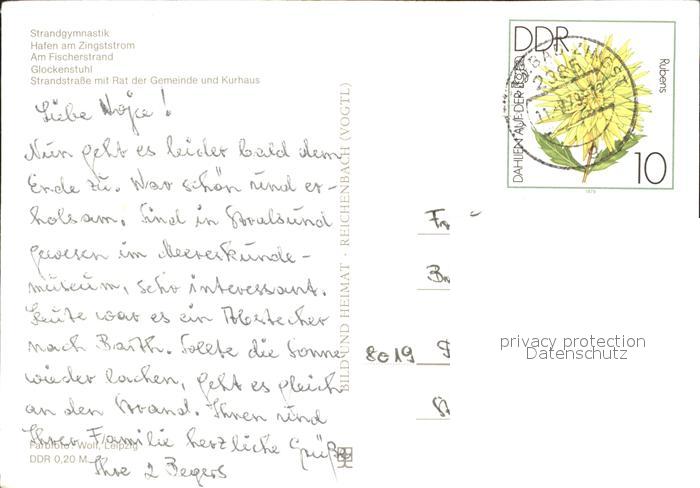 Strandgymnastik
Hafen am Zingststrom
Am Fischerstrand
Glockenstuhl
Strandstraße mit Rat der Gemeinde und Kurhaus
Liebe
Nun geht es leider bald dem
Ende zu. War schön und er-
holsam. Sind in Stralsund
gewesen im Meereskunde-
museum, sehr interessant.
Heute war es ein Abstecher
nach Barth. Sollte die Sonne
wieder lachen, geht es gleich
an den Strand. Ihnen und
Ihrer Familie herzliche Grüße
Ihre 2 Begers
Farbfoto: Woil, Leipzig
DDR 0,20 M
BILD UND HEIMAT · REICHENBACH (VOGTL)
DDR
DAHLIEN AUF DER
Rubens
10
1979
2385
Fr
8019
privacy protection
Datenschutz